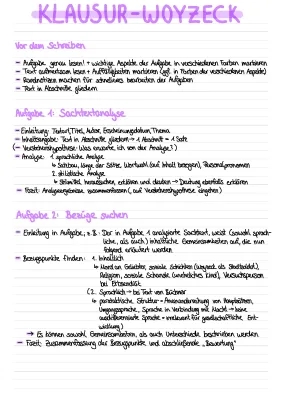 KLAUSUR-WOYZECK
Vor dem Schreiben
- Aufgabe genau lesen! → wichtige Aspekte der Aufgabe in verschiedenen Farben markieren
- Text aufmerksam lesen + Auffälligkeiten markieren (ggf. in Farben der verschiedenen Aspekte)
- Randnotizen machen für schnelleres bearbeiten der Aufgaben
- Text in Abschnitte gliedern
Aufgabe 1: Sachtextanalyse
- Einleitung: Textart, Titel, Autor, Erscheinungsdatum, Thema
- Inhaltsangabe: Text in Abschnitte gliedern → 1 Abschnitt = 1 Satz
(- Verstehenshypothese: Was erwarte ich von der Analyse?)
- Analyse: 1. sprachliche Analyse
↳ Satzbau, länge der Sätze, Wortwahl (auf Inhalt bezogen), Personalpronomen
2. stilistische Analyse
↳ Stilmittel heraussuchen, erklären und deuten → Deutung ebenfalls erklären
- Fazit: Analyseergebnisse zusammenfassen (, auf Verstehenshypothese eingehen)
Aufgabe 2: Bezüge suchen
- Einleitung in Aufgabe, z.B.: Der in Aufgabe 1 analysierte Sachtext, weist (sowohl sprach-
liche, als auch) inhaltliche Gemeinsamkeiten auf, die nun
folgend erläutert werden
- Bezugspunkte finden: 1. Inhaltlich
↳ Mord an Geliebter, soziale Schichten (Woyzeck als Stadtsoldat),
Religion, soziale Schande (uneheliches Kind), Versuchsperson
bei Erbsendiät
(2. Sprachlich → bei Text von Büchner
↳ parataktische Struktur = Aneinanderreihung von Hauptsätzen,
Umgangssprache, Sprache in Verbindung mit Macht → keine
ausdifferenzierte Sprache = irrelevant für gesellschaftliche Ent-
wicklung)
→ Es können sowohl Gemeinsamkeiten, als auch Unterschiede beschrieben werden
- Fazit: Zusammenfassung der Bezugspunkte und abschließende „Bewertung"